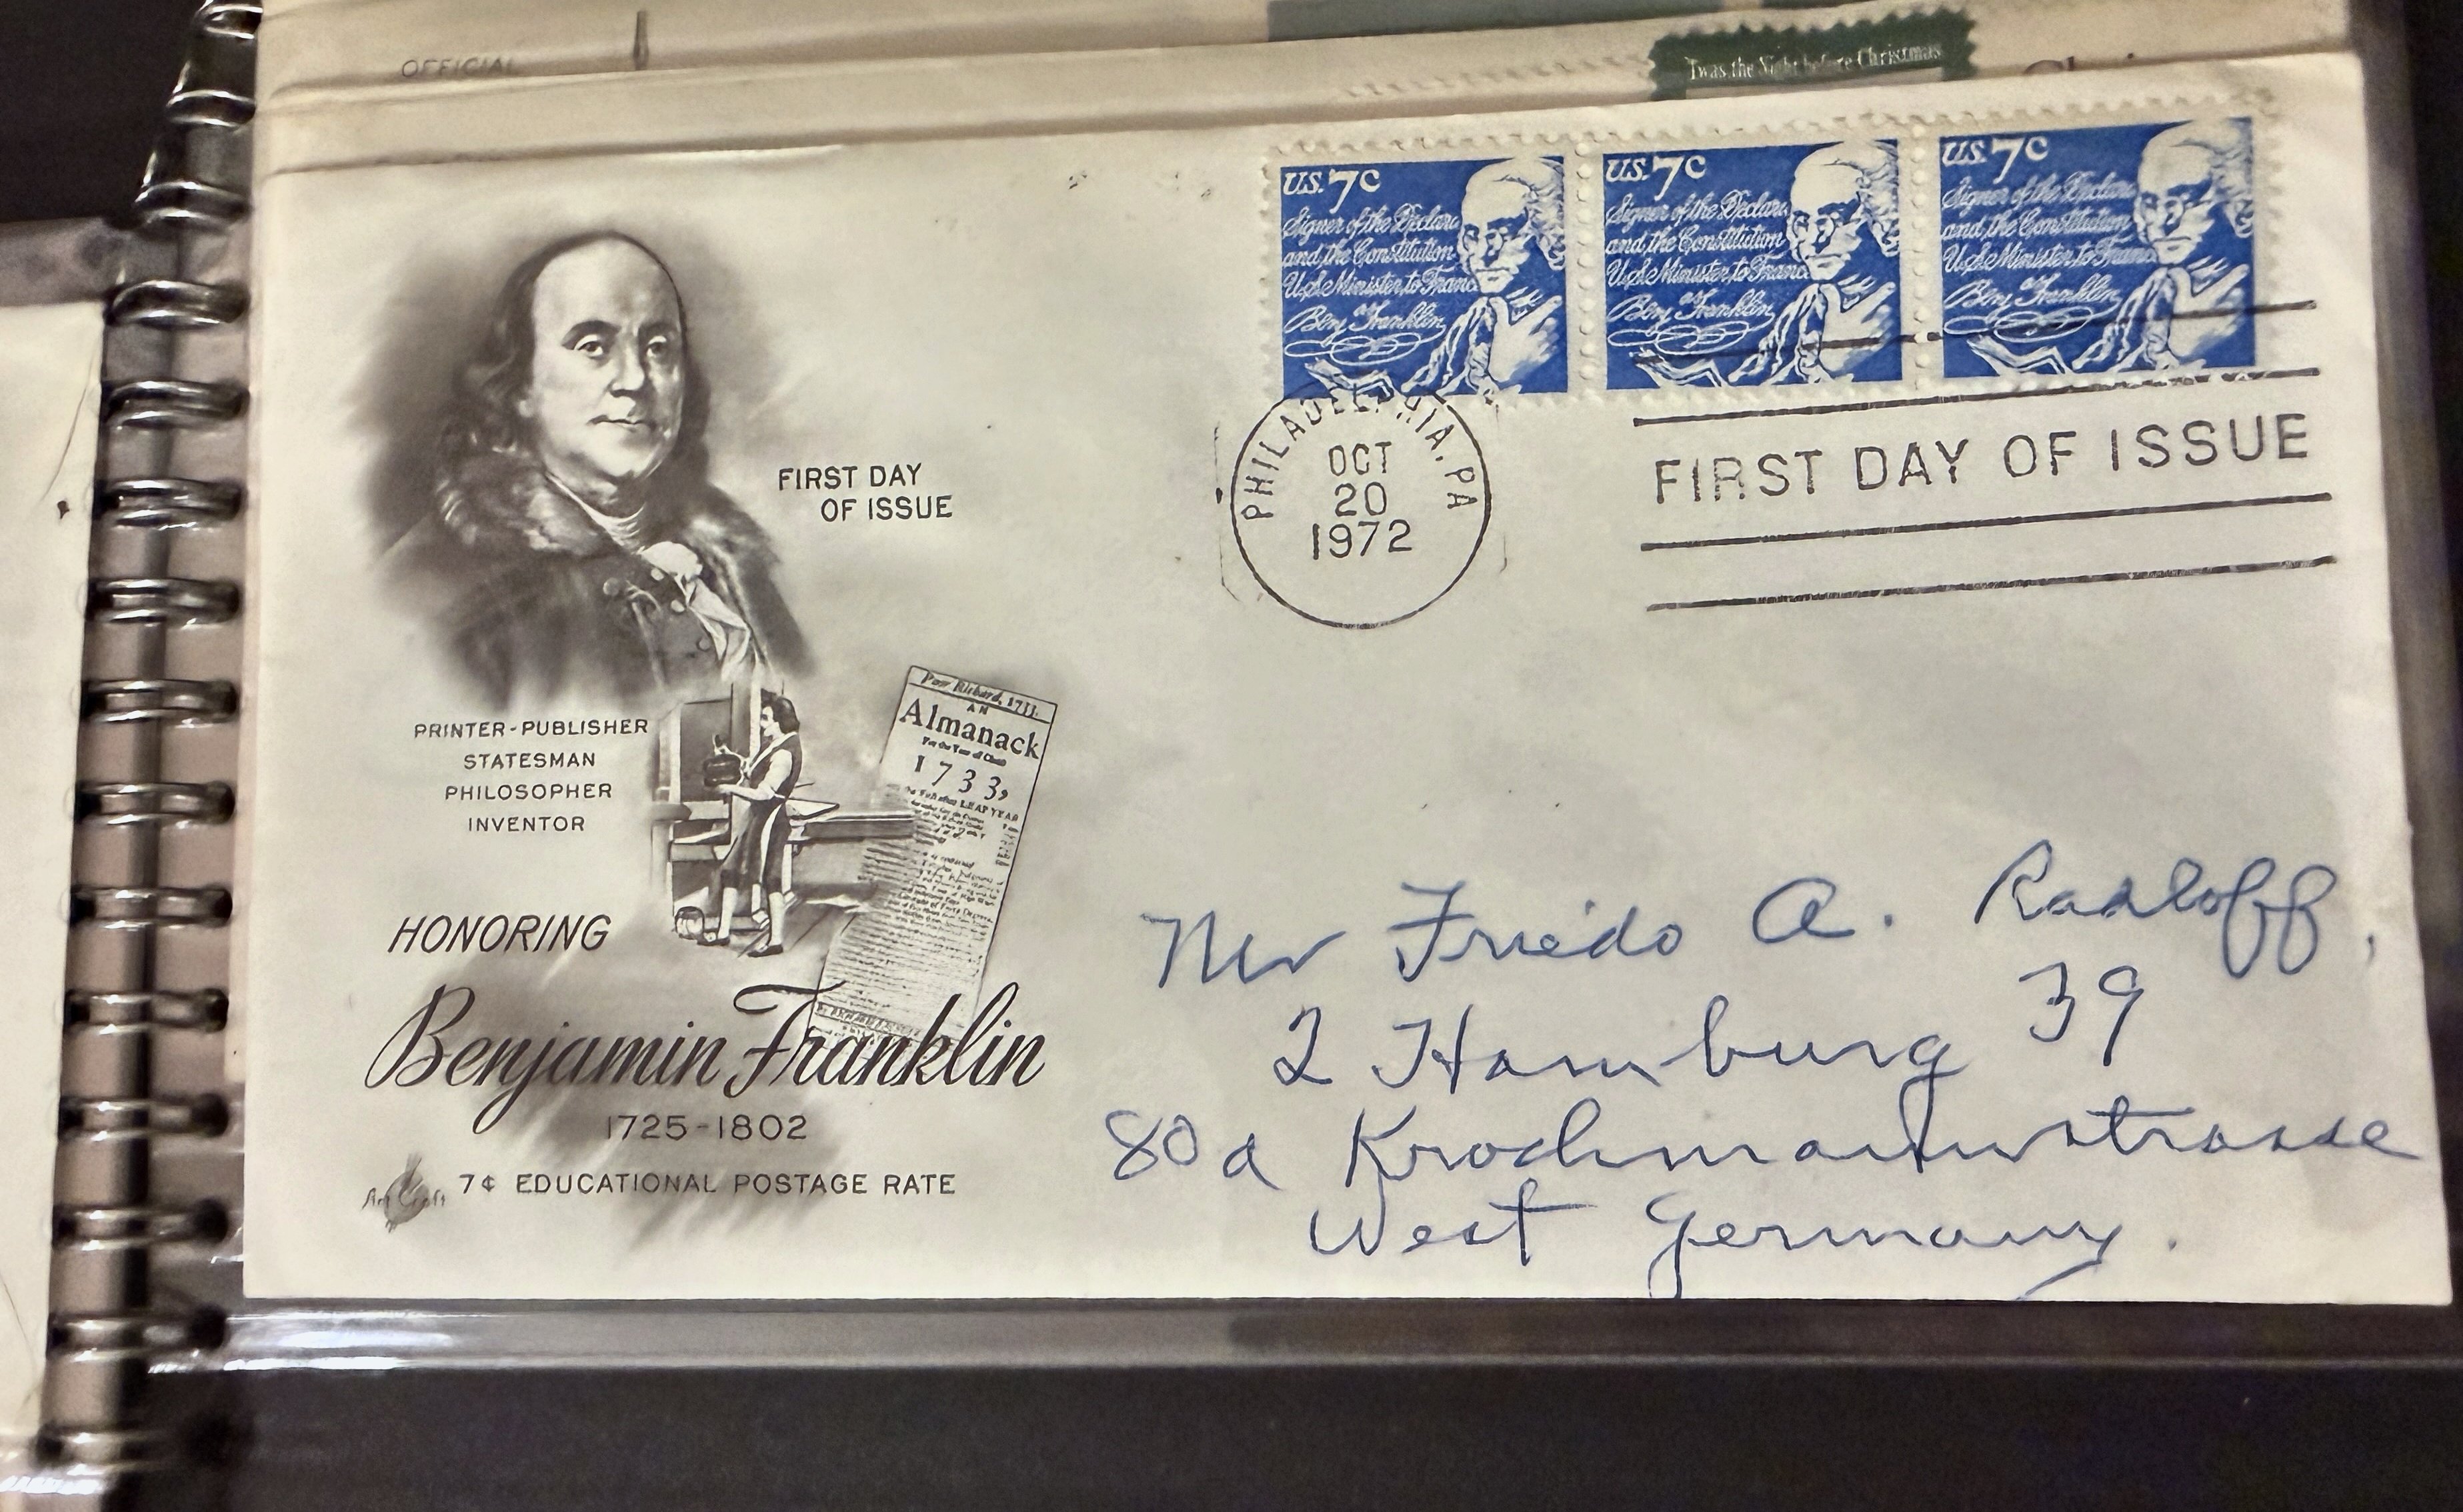 OFFICIAL
'Twas the Night before Christmas
U.S. 7c
Signer of the Declara
and the Constitution
U.S. Minister to Franc
as
Benj Franklin
U.S. 7c
Signer of the Declara
and the Constitution
U.S. Minister to Franc
as
Benj Franklin
U.S. 7c
Signer of the Declara
and the Constitution
U.S. Minister to Franc
as
Benj Franklin
PHILADELPHIA, PA
OCT
20
1972
FIRST DAY OF ISSUE
FIRST DAY
OF ISSUE
Poor Richard, 1733.
AN
Almanack
For the Year of Christ
1733,
LEAP YEAR
PRINTER-PUBLISHER
STATESMAN
PHILOSOPHER
INVENTOR
HONORING
Benjamin Franklin
1725-1802
Art Craft
7¢ EDUCATIONAL POSTAGE RATE
Mr Friedo A. Radloff,
2 Hamburg 39
80a Krochmannstrasse
West Germany.